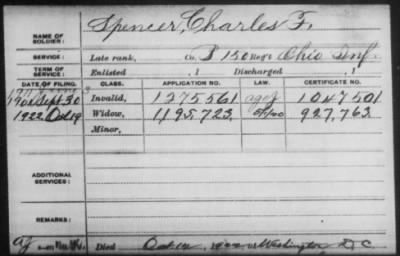 Spencer, Charles F.
NAME OF SOLDIER:
SERVICE: Late rank, Co. 150 Reg't Ohio Inf.
TERM OF SERVICE: Enlisted , 1 Discharged , 1
DATE OF FILING. CLASS. APPLICATION NO. LAW. CERTIFICATE NO.
Sept 30 Invalid, 1275561 1047501
1922 Oct 19 Widow, 1195723 927,763
Minor,
ADDITIONAL SERVICES:
REMARKS:
Died Washington D.C.